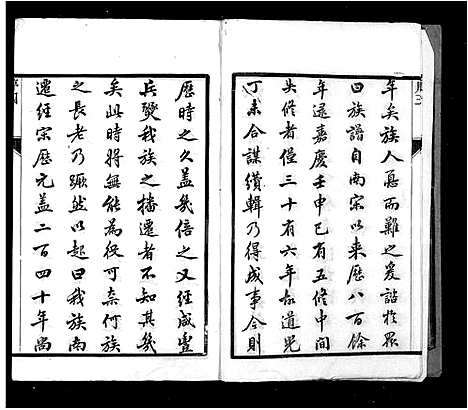 年矣族人憙而難之爰諮於眾
曰族譜自南宋以來歷八百餘
年遝嘉慶壬申已有五修中間
失修者僅三十有六年故道光
丁未合謀續輯乃得成事今則
歷時之久蓋幾倍之又經咸豐
兵燹我族之播遷者不知其幾
矣此時將無能為役可奈何族
之長老乃蹶然以起曰我族南
遷經宋歷元蓋二百四十年尚